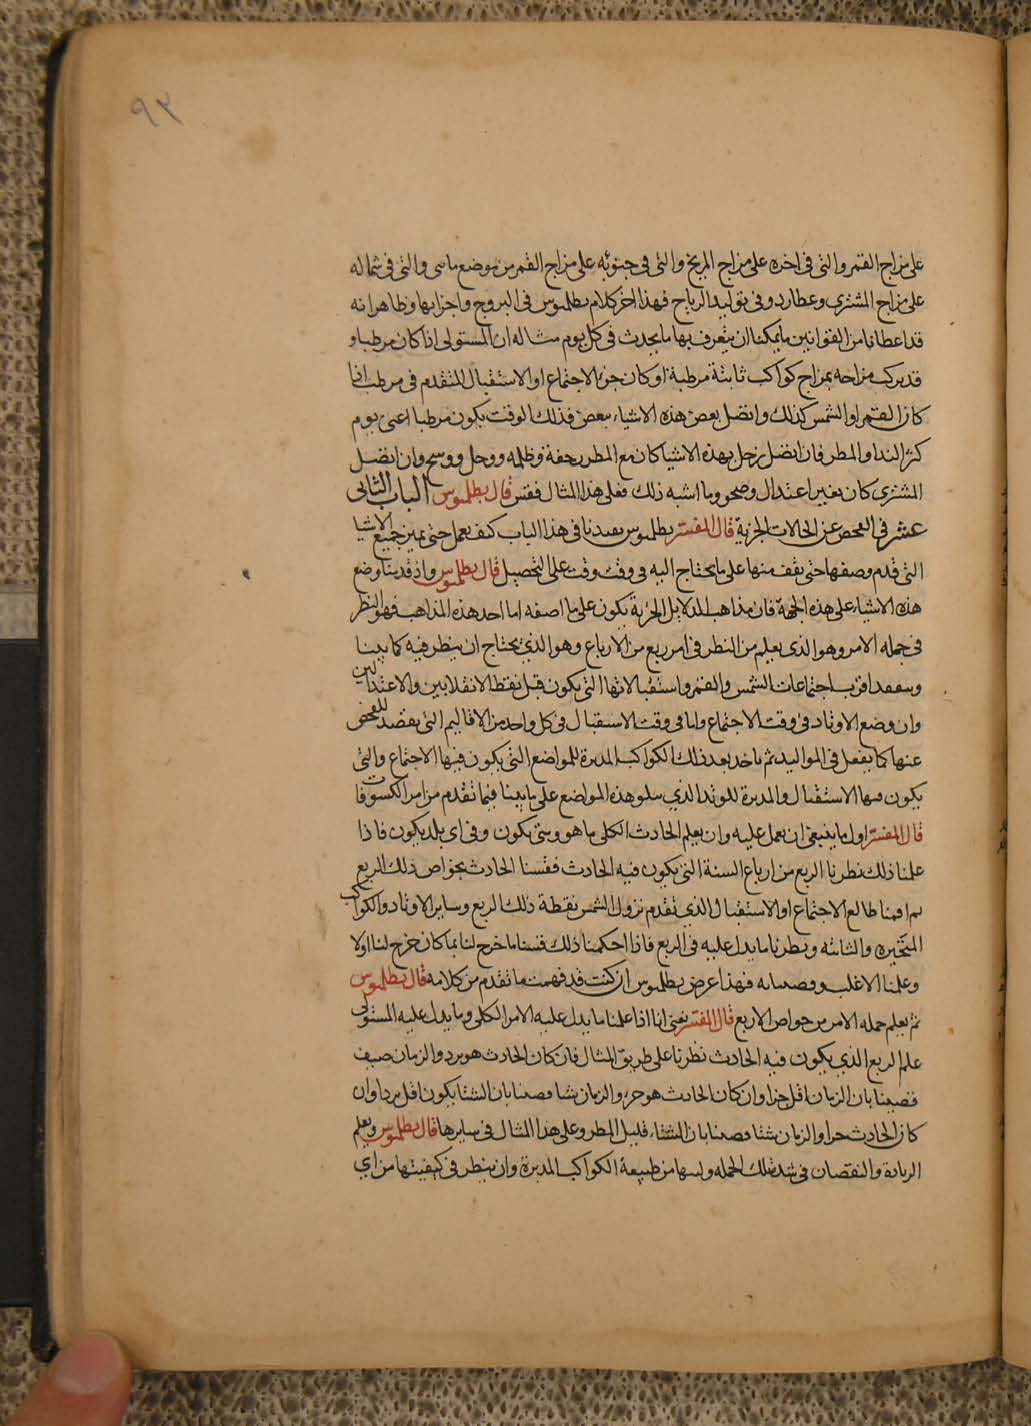 ٩٢
على مزاج القمر والتى فى اخره على مزاج المريخ والتى فى جنوبه على مزاج القمر من موضع ماسى والتى فى شماله
على مزاج المشترى وعطارد وفى توليد الرياح فهذا اخر كلام بطلميوس فى البروج واجزايها وظاهر انه
قد اعطانا من القوانين ما يمكننا ان نتعرف بها ما يحدث فى كل يوم مثاله ان المستولى اذا كان مرطبا و
قد تركب مزاجه بمزاج كواكب ثابتة مرطبة او كان جزء الاجتماع او الاستقبال المتقدم فى مرطب اذا
كان القمر او الشمس كذلك واتصل بعض هذه الاشياء ببعض فذلك الوقت يكون مرطبا اعنى يوم
كثر الندا والمطر فان اتصل زحل بهذه الاشيا كان مع المطر رجفة وظلمه ووحل ووسخ وان اتصل
المشترى كان بغير اعتدال وصحو وما اشبه ذلك فعلى هذا المثال فقس قال بطلميوس الباب الثانى
عشر فى الفحص عن الحالات الجزية قال المفسر بطلميوس يفيدنا فى هذا الباب كيف نعمل حتى نميز جميع الاشيا
التى قدم وصفها حتى نقف منها على ما يحتاج اليه فى وقت وقت على التحصيل قال بطلميوس واذ قدمنا وضع
هذه الاشياء على هذه الجهة فان مذاهب الدلايل الجزية يكون على ما اصفه اما احد هذه المذاهب فهو النظر
فى جمله الامر وهو الذى يعلم من النظر فى امر ربع من الارباع وهو الذى يحتاج ان ينظر فيه كما بينا
وسفقد اقرب اجتماعات الشمس والقمر واستقبالاتها التى يكون قبل نقط الانقلابين والاعتدالين
وان وضع الاوتاد فى وقت الاجتماع واما فى وقت الاستقبال فى كل واحد من الاقاليم التى يقصد للفحص
عنها كما يفعل فى المواليد ثم ياخذ بعد ذلك الكواكب المدبرة للمواضع التى يكون فيها الاجتماع والتى
يكون فيها الاستقبال والمدبرة للوتد الذى يتلو هذه المواضع على ما بينا فيما تقدم من امر الكسوفات
قال المفسر اول ما ينبغى ان نعمل عليه وان يعلم الحادث الكلى ما هو ومتى يكون وفى اى بلد يكون فاذا
علمنا ذلك نظرنا الربع من ارباع السنة التى يكون فيه الحادث فقسنا الحادث بخواص ذلك الربع
ثم اقمنا طالع الاجتماع او الاستقبال الذى تقدم نزول الشمس نقطة ذلك الربع وساير الاوتاد والكواكب
المتحيره والثابته ونظرنا ما يدل عليه فى الربع فاذا احكمنا ذلك قسنا ما خرج لنا بما كان خرج لنا اولا
وعلمنا الاغلب وقضينا به فهذا غرض بطلميوس ان كنت قد فهمت ما تقدم من كلامه قال بطلميوس
ثم يعلم جمله الامر من خواص الاربع قال المفسر يعنى انا اذا علمنا ما يدل عليه الامر الكلى وما يدل عليه المستولى
على الربع الذى يكون فيه الحادث نظرنا على طريق المثال فان كان الحادث هو برد والزمان صيف
قضينا بان الزمان اقل حرا وان كان الحادث هو حر والزمان شتا قضينا بان الشتا يكون اقل بردا وان
كان الحادث حرا والزمان شتا قضينا بان الشتاء قليل المطر وعلى هذا المثال فى سايرها قال بطلميوس ويعلم
الزيادة والنقصان فى شدة تلك الجمله ولينها من طبيعة الكواكب المدبرة وان ينظر فى كيفيتها من اى